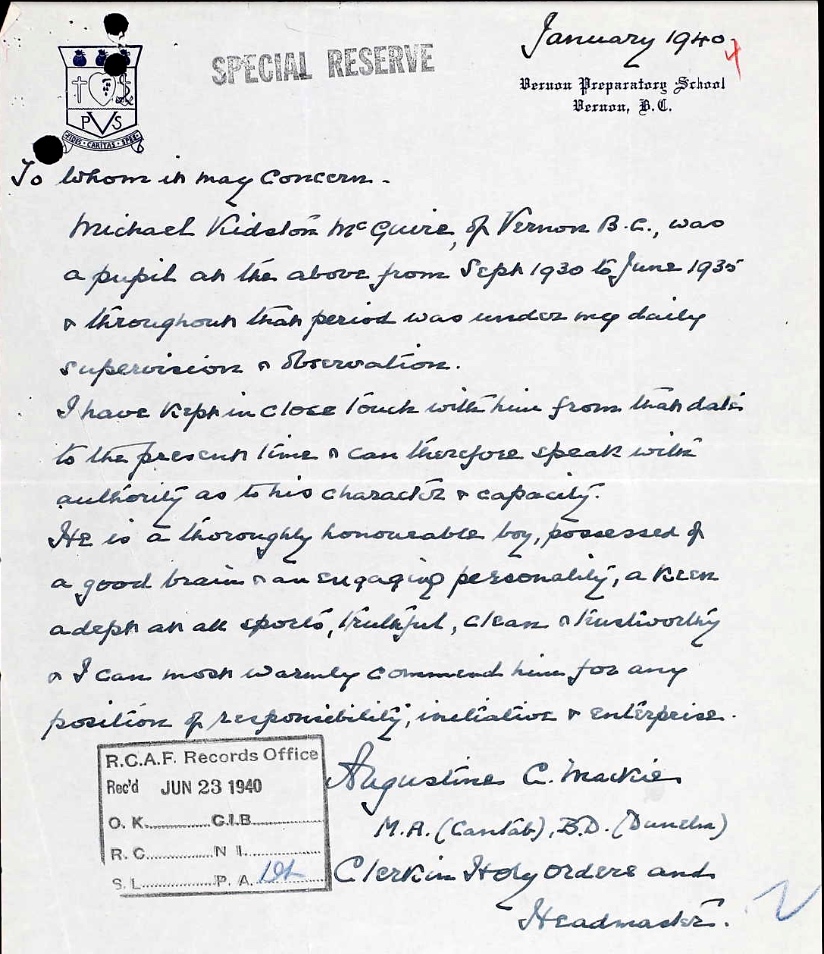 January 1940
SPECIAL RESERVE
Vernon Preparatory School
Vernon, B.C.
PVS
FIDES · CARITAS · SPES
To whom it may concern.
Michael Kidston McGuire, of Vernon B.C., was
a pupil at the above from Sept 1930 to June 1935
& throughout that period was under my daily
supervision & observation.
I have kept in close touch with him from that date
to the present time & can therefore speak with
authority as to his character & capacity.
He is a thoroughly honourable boy, possessed of
a good brain & an engaging personality, a keen
adept at all sports, truthful, clean & trustworthy
& I can most warmly commend him for any
position of responsibility, initiative & enterprise.
R.C.A.F. Records Office
Rec'd JUN 23 1940
O. K. C.I.B.
R. C. N I.
S. L. P. A.
Augustine C. Mackie
M.A. (Cantab), B.D. (Dunelm)
Clerk in Holy Orders and
Headmaster.